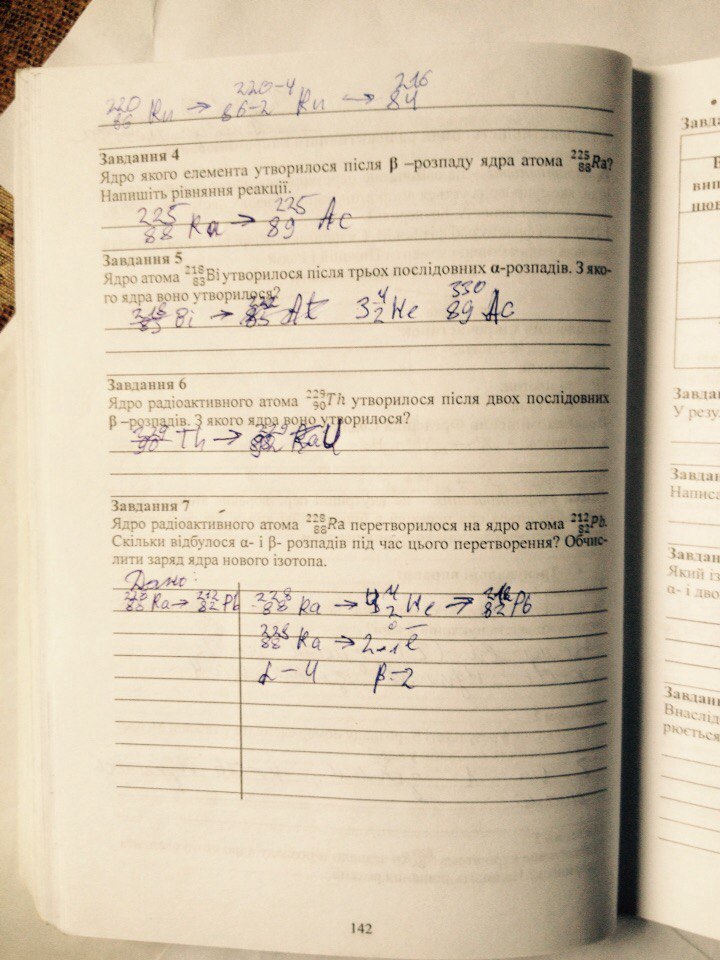 220 86 Rn → 220-4 86-2 Rn → 216 84
Завдання 4
Ядро якого елемента утворилося після β –розпаду ядра атома 225 88 Ra?
Напишіть рівняння реакції.
225 88 Ra → 225 89 Ac
Завдання 5
Ядро атома 218 83 Bi утворилося після трьох послідовних α-розпадів. З яко-
го ядра воно утворилося?
218 83 Bi → 85 At 3 4 2 He 330 89 Ac
Завдання 6
Ядро радіоактивного атома 229 90 Th утворилося після двох послідовних
β –розпадів. З якого ядра воно утворилося?
229 90 Th → U
Завдання 7
Ядро радіоактивного атома 228 88 Ra перетворилось на ядро атома 212 82 Pb.
Скільки відбулося α- і β- розпадів під час цього перетворення? Обчис-
лити заряд ядра нового ізотопа.
Дано:
228 88 Ra → 212 82 Pb 228 88 Ra → 4 4 2 He → 212 82 Pb
228 88 Ra → 2 0 -1 e
α – 4 β – 2
142
Завда
вип
нюв
Завдан
У резу
Завдан
Написа
Завдан
Який із
α- і дво
Завдан
Внаслід
рюється